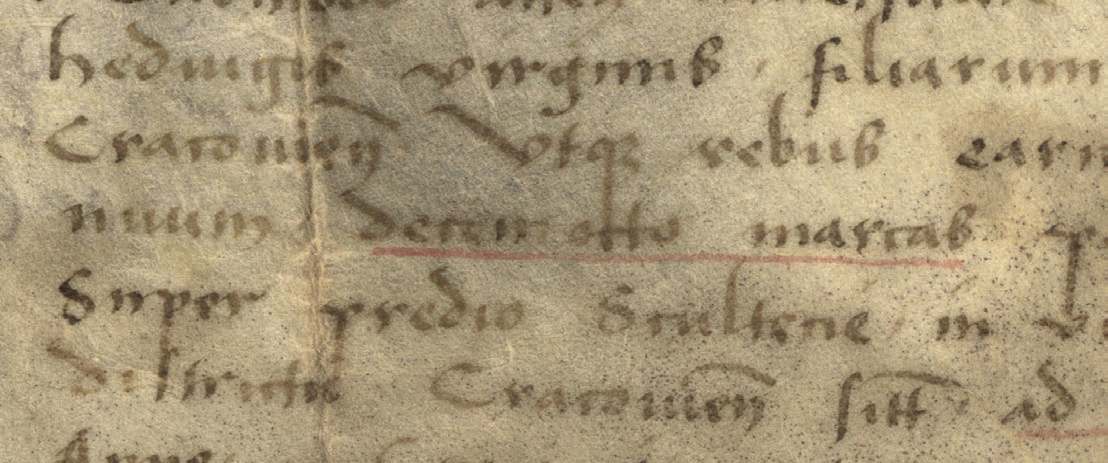 heduigis virginis filiarum
Cracouien Vtq3 rebus earu
nuum decem octo marcas
Super predio Scultecie in
districtu Cracouien sitt ad